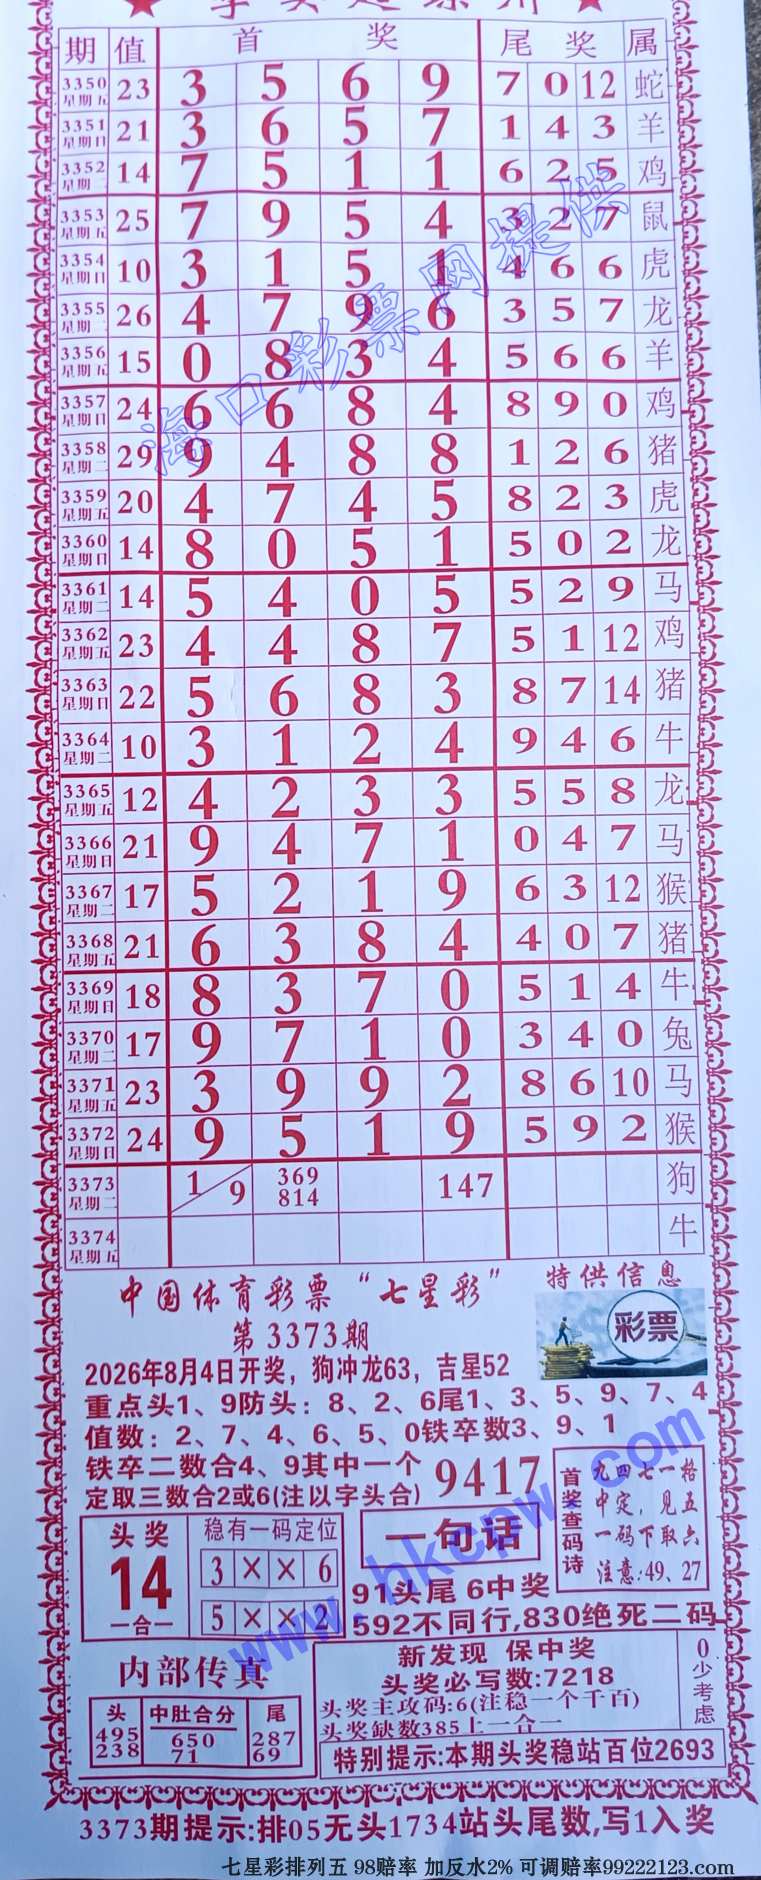 期 值 首 奖 尾 奖 属
3350 星期五 23 3 5 6 9 7 0 12 蛇
3351 星期日 21 3 6 5 7 1 4 3 羊
3352 星期二 14 7 5 1 1 6 2 5 鸡
3353 星期五 25 7 9 5 4 3 2 7 鼠
3354 星期日 10 3 1 5 1 4 6 6 虎
3355 星期二 26 4 7 9 6 3 5 7 龙
3356 星期五 15 0 8 3 4 5 6 6 羊
3357 星期日 24 6 6 8 4 8 9 0 鸡
3358 星期二 29 9 4 8 8 1 2 6 猪
3359 星期五 20 4 7 4 5 8 2 3 虎
3360 星期日 14 8 0 5 1 5 0 2 龙
3361 星期二 14 5 4 0 5 5 2 9 马
3362 星期五 23 4 4 8 7 5 1 12 鸡
3363 星期日 22 5 6 8 3 8 7 14 猪
3364 星期二 10 3 1 2 4 9 4 6 牛
3365 星期五 12 4 2 3 3 5 5 8 龙
3366 星期日 21 9 4 7 1 0 4 7 马
3367 星期二 17 5 2 1 9 6 3 12 猴
3368 星期五 21 6 3 8 4 4 0 7 猪
3369 星期日 18 8 3 7 0 5 1 4 牛
3370 星期二 17 9 7 1 0 3 4 0 兔
3371 星期五 23 3 9 9 2 8 6 10 马
3372 星期日 24 9 5 1 9 5 9 2 猴
3373 星期二 1/9 369 814 147 狗
3374 星期五 牛
海口彩票网提供
中国体育彩票“七星彩” 特供信息
第3373期
彩票
2026年8月4日开奖，狗冲龙63，吉星52
重点头1、9防头：8、2、6尾1、3、5、9、7、4
值数：2、7、4、6、5、0铁卒数3、9、1
铁卒二数合4、9其中一个
定取三数合2或6(注以字头合)
9417
首奖查码诗
九四七一格
中定，见五
一码下取六
注意:49、27
头奖
14
一合一
稳有一码定位
3 × × 6
5 × × 2
一句话
91头尾 6中奖
592不同行,830绝死二码
www.hkcpw.com
内部传真
头 495 238
中肚合分 650 71
尾 287 69
新发现 保中奖
头奖必写数:7218
头奖主攻码:6(注稳一个千百)
头奖缺数385上一合一
0少考虑
特别提示:本期头奖稳站百位2693
3373期提示:排05无头1734站头尾数,写1入奖
七星彩排列五 98赔率 加反水2% 可调赔率99222123.com